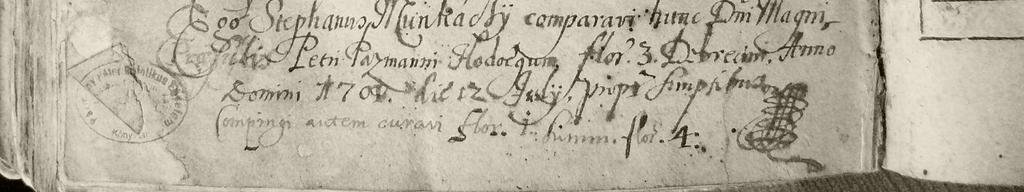 Ego Stephanus Munkácsÿ comparavi hunc Dni Magni,
Petri Pazmanni Hodoegum, flor. 3. Debrecini. Anno
Domini 1701. die 12 July. propr Sumptibus
Compingi autem curavi flor. 1. Summ. flor 4: